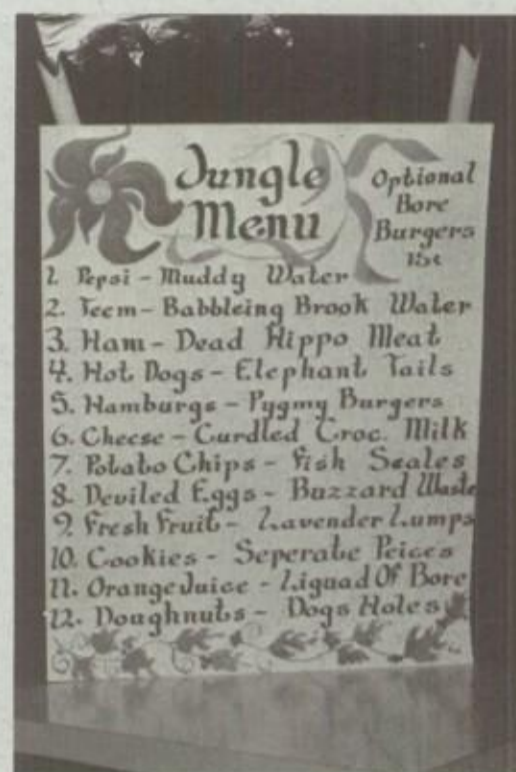 Jungle
Menu
Optional
Bore
Burgers
15¢
1. Pepsi - Muddy Water
2. Teem - Babbleing Brook Water
3. Ham - Dead Hippo Meat
4. Hot Dogs - Elephant Tails
5. Hamburgs - Pygmy Burgers
6. Cheese - Curdled Croc. Milk
7. Potato Chips - Fish Scales
8. Deviled Eggs - Buzzard Waste
9. Fresh Fruit - Lavender Lumps
10. Cookies - Seperate Peices
11. Orange Juice - Liguad Of Bore
12. Doughnuts - Dogs Holes